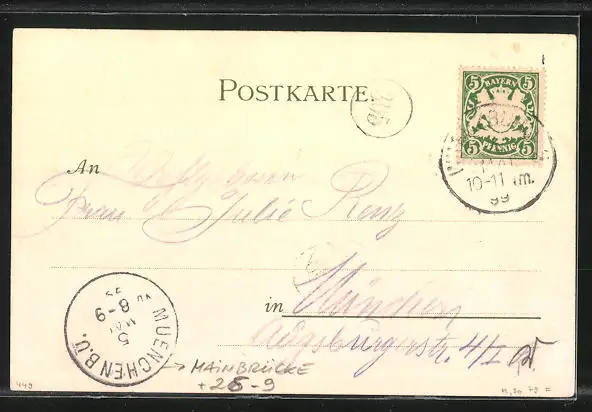 POSTKARTE
5 BAYERN 5
5 PFENNIG 5
MAI
10-11 Vm.
99
An
Frau Julie Renz
in München
Augsburgerstr. 4/I
MUENCHEN B.U.
5
MAI
8-9
→ MAINBRÜCKE
+ 26-9